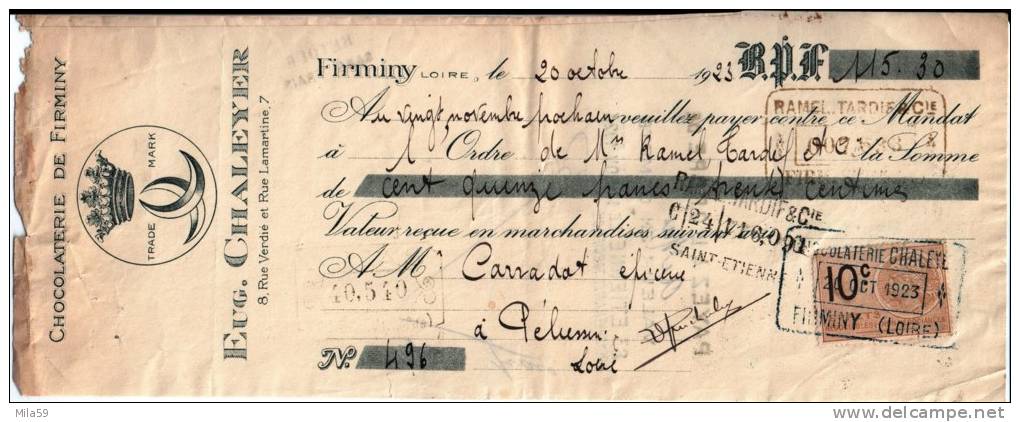 CHOCOLATERIE DE FIRMINY
TRADE MARK
EUG. CHALEYER
8, Rue Verdié et Rue Lamartine, 7
Firminy LOIRE, le 20 octobre 1923 B.P.F. 115.30
Au vingt novembre prochain veuillez payer contre ce Mandat
à l' Ordre de Mrs Ramel Tardif & C la Somme
de cent quinze francs trente centimes
Valeur reçue en marchandises suivant
A M Carradat épicerie
à Pélussin
Loire
No. 496
RAMEL, TARDIF & CIE
TARDIF & CIE
SAINT-ETIENNE
40,540
CHOCOLATERIE CHALEYE
10c
OCT 1923
FIRMINY (LOIRE)
Mila59
www.delcampe.net